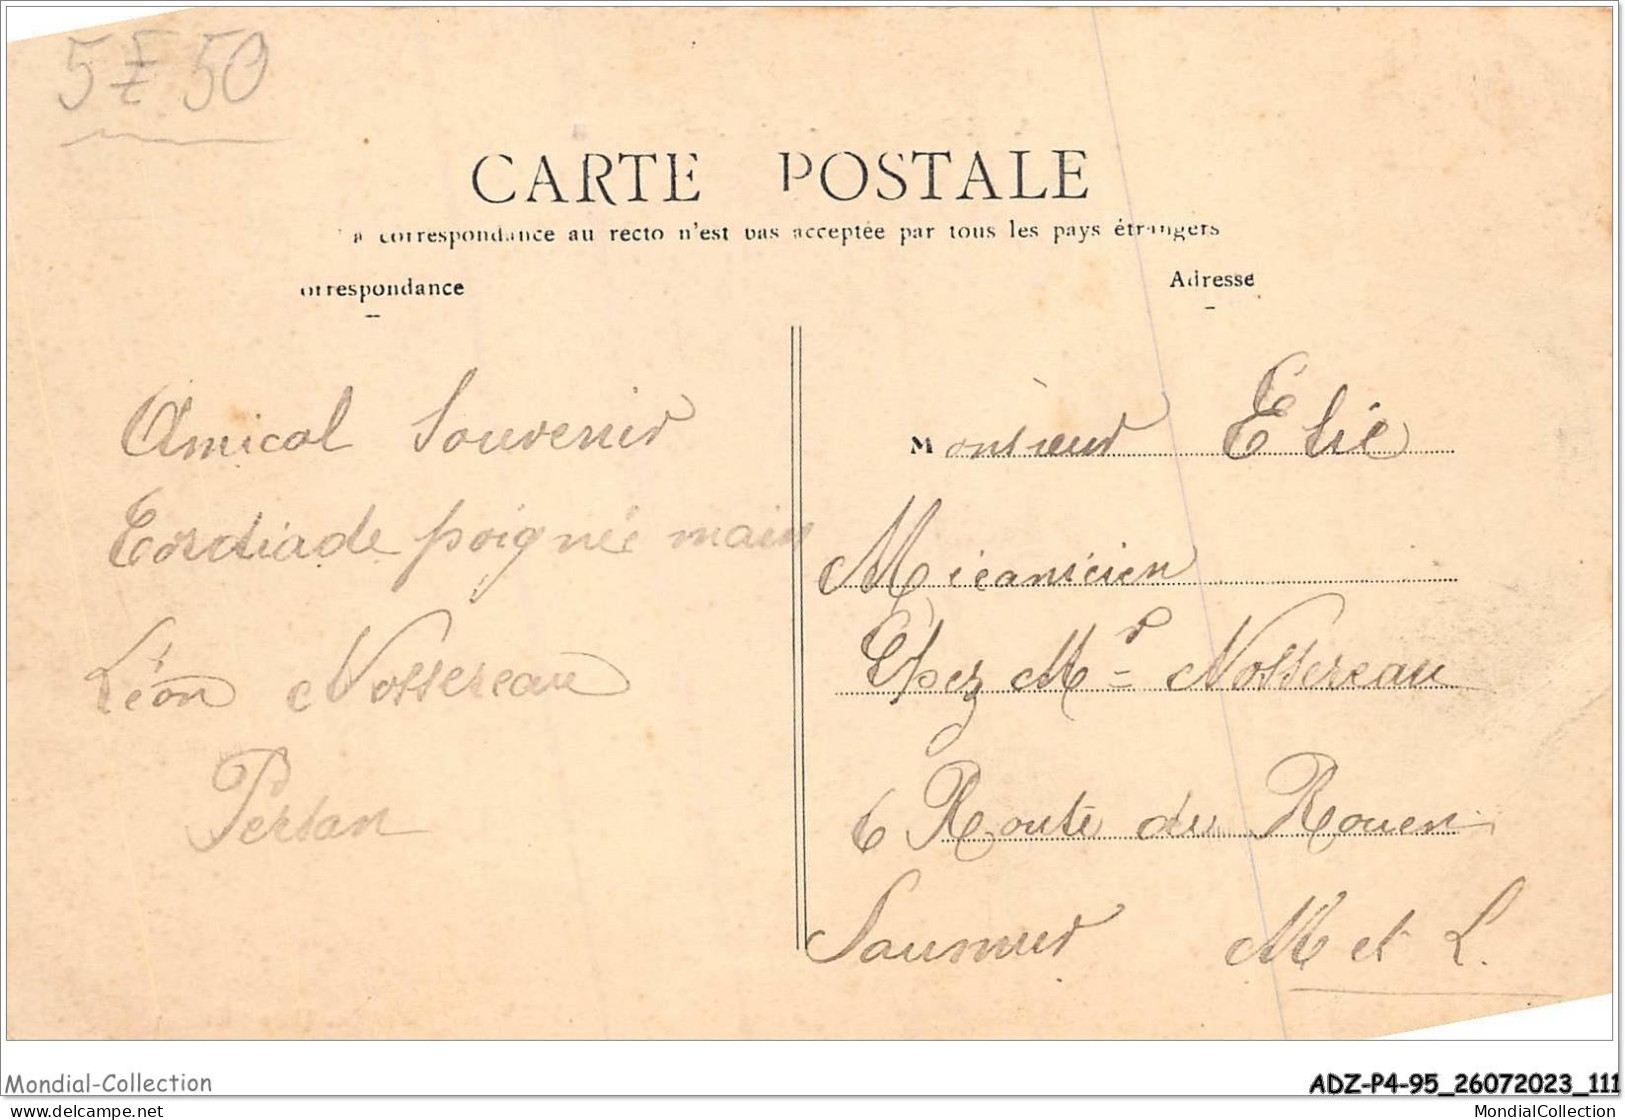 5 E 50
CARTE POSTALE
a correspondance au recto n'est pas acceptée par tous les pays étrangers
orrespondance
Adresse
Amical Souvenir
Cordiade poignée main
Léon Nossereau
Persan
Monsieur Elie
Mécanicien
Chez Mr Nossereau
6 Route du Rouen
Saumur M et L.
Mondial-Collection
ADZ-P4-95_26072023_111
www.delcampe.net
MondialCollection